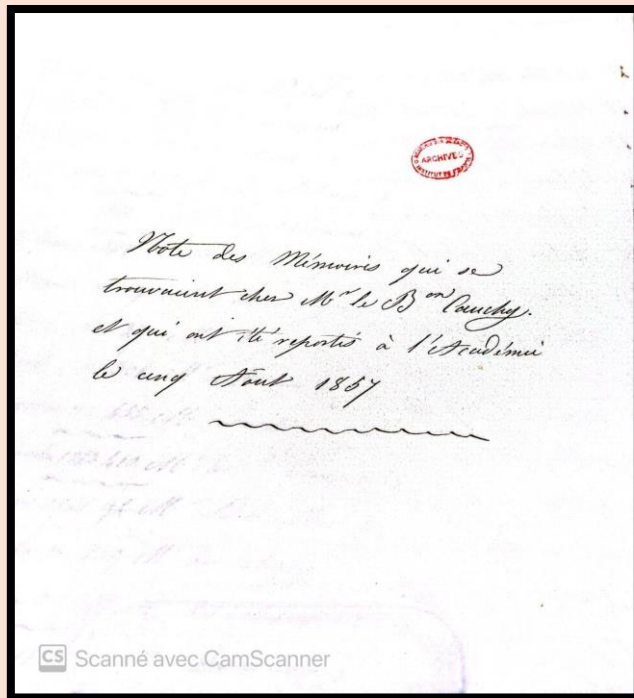 ARCHIVES
Note des Mémoires qui se
trouvaient chez Mr le Bon Cauchy.
et qui ont été reportés à l'Académie
le cinq Aout 1857
CS Scanné avec CamScanner